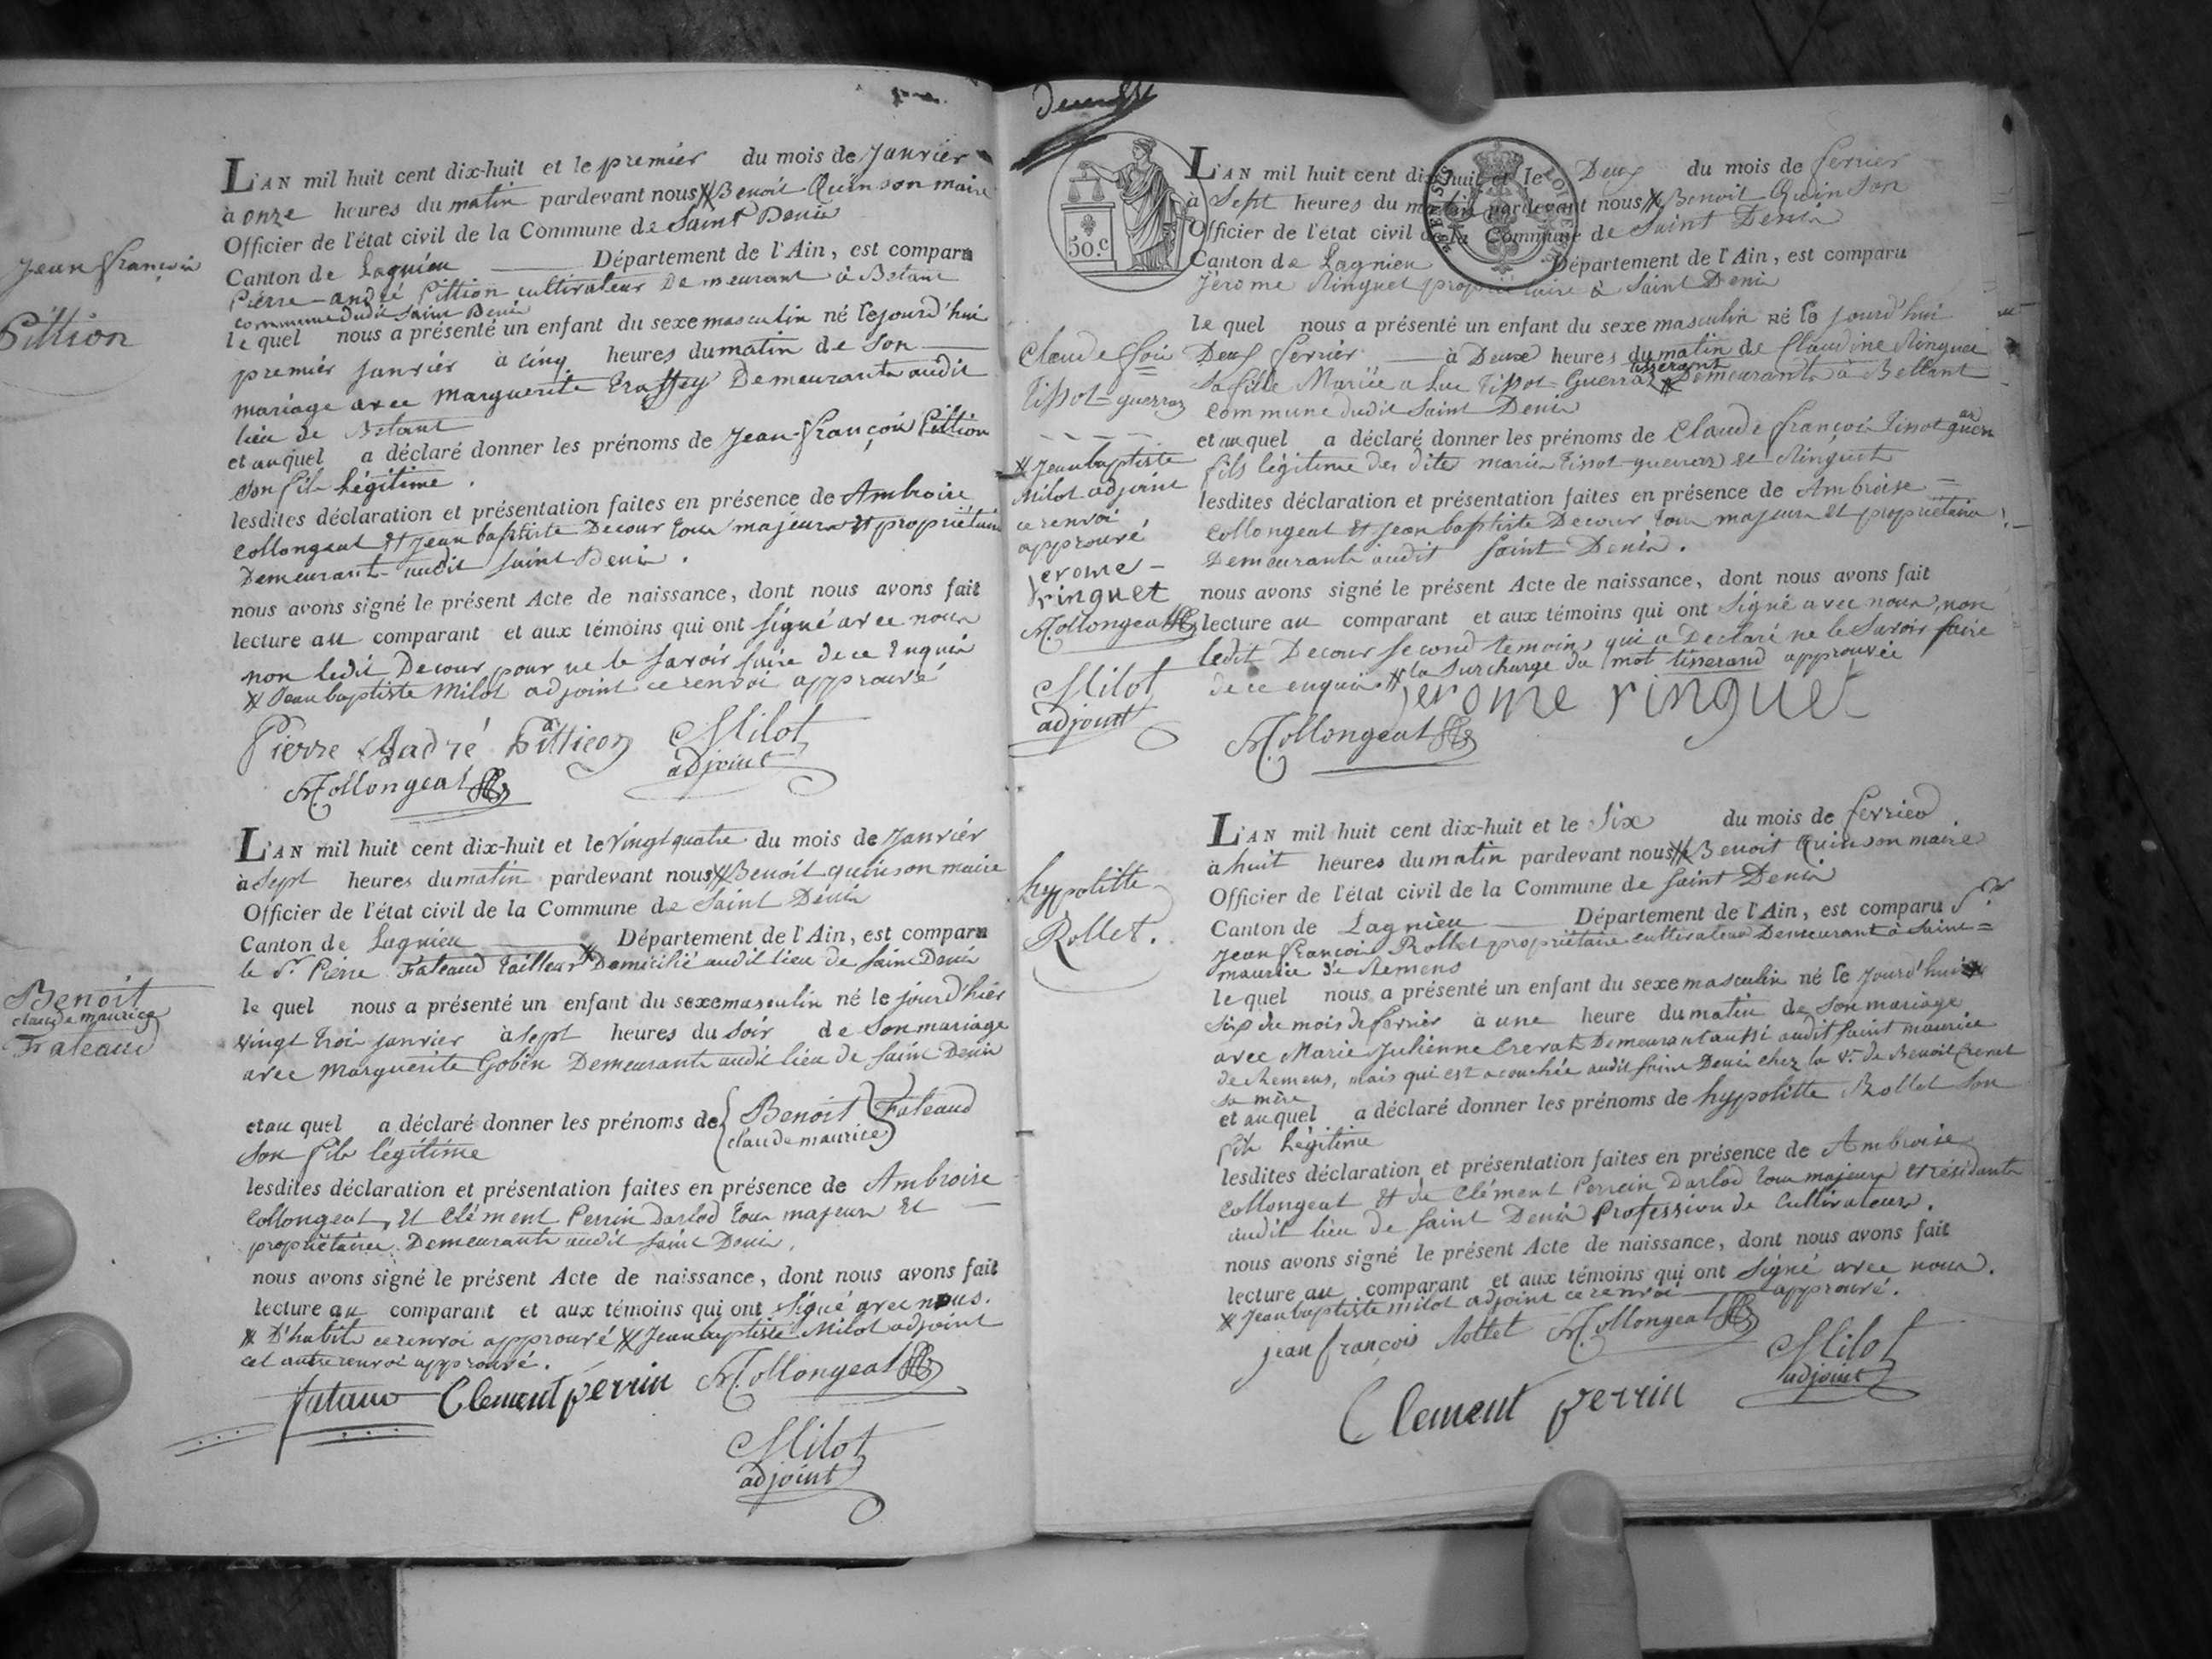 L'AN mil huit cent dix-huit et le premier du mois de Janvier
à onze heures du matin pardevant nous Benoit Quinson maire
Officier de l'état civil de la Commune de Saint Denis
Canton de Lagnieu Département de l'Ain, est comparu
Pierre-andré Pittion cultivateur Demeurant à Betant
commune dudit Saint Denis
le quel nous a présenté un enfant du sexe masculin né le jourd'hui
premier janvier à cinq heures du matin de Son
mariage avec marguerite Demeurante audit
lieu de Betant
et auquel a déclaré donner les prénoms de Jean-françois Pittion
son fils légitime.
lesdites déclaration et présentation faites en présence de Ambroise
Collongeat et Jean baptiste Decour tous majeurs et propriétaires
Demeurants audit Saint Denis.
nous avons signé le présent Acte de naissance, dont nous avons fait
lecture au comparant et aux témoins qui ont signé avec nous
non ledit Decour pour ne le savoir faire de ce Enquis
Jean baptiste Milot adjoint ce renvoi approuvé
Pierre Pittion
Milot
adjoint
Collongeat
Jean françois
Pittion
L'AN mil huit cent dix-huit et le vingt quatre du mois de Janvier
à sept heures du matin pardevant nous Benoit quinson maire
Officier de l'état civil de la Commune de Saint Denis
Canton de Lagnieu Département de l'Ain, est comparu
le Sr. Pierre Fateaud tailleur Domicilié audit lieu de Saint Denis
le quel nous a présenté un enfant du sexe masculin né le jourd'hier
vingt trois janvier à sept heures du soir de Son mariage
avec Marguerite Gobin Demeurante audit lieu de Saint Denis
et au quel a déclaré donner les prénoms de Benoit Fateaud
claude maurice
son fils légitime
lesdites déclaration et présentation faites en présence de Ambroise
Collongeat, et Clément Perrin Darlod tous majeurs et
propriétaires Demeurants audit Saint Denis.
nous avons signé le présent Acte de naissance, dont nous avons fait
lecture au comparant et aux témoins qui ont signé avec nous.
D'habits ce renvoi approuvé Jean baptiste Milot adjoint
cet autre renvoi approuvé.
Clement perrin Collongeat
Milot
adjoint
Benoit
claude maurice
Fateaud
50.c
L'AN mil huit cent dix-huit et le Deux du mois de fevrier
à Sept heures du matin pardevant nous Benoit Quinson
Officier de l'état civil de la Commune de Saint Denis
Canton de Lagnieu Département de l'Ain, est comparu
Jérome Ringuet propriétaire à Saint Denis
le quel nous a présenté un enfant du sexe masculin né le jourd'hui
Deux fevrier à Deux heures du matin de Claudine Ringuet
Sa fille Mariée a Luc Tissot-Guerraz tisserant Demeurants à Bettant
commune dudit Saint Denis
et auquel a déclaré donner les prénoms de Claude françois Tissot guerraz
fils légitime des dits mariés Tissot-guerraz et Ringuet
lesdites déclaration et présentation faites en présence de Ambroise
Collongeat et Jean baptiste Decour tous majeurs et propriétaires
Demeurants audit Saint Denis.
nous avons signé le présent Acte de naissance, dont nous avons fait
lecture au comparant et aux témoins qui ont signé avec nous, non
ledit Decour second temoins qui a Declaré ne le Savoir faire
de ce enquis la Surcharge du mot tisserand approuvée
jerome ringuet
Collongeat
Claude fois
Tissot-guerraz
Jean baptiste
Milot adjoint
ce renvoi
approuvé
jerome
ringuet
Collongeat
Milot
adjoint
L'AN mil huit cent dix-huit et le Six du mois de fevrier
à huit heures du matin pardevant nous Benoit Quinson maire
Officier de l'état civil de la Commune de Saint Denis
Canton de Lagnieu Département de l'Ain, est comparu Sr.
Jean françois Rollet propriétaire cultivateur Demeurant à Saint
maurice de Remens
le quel nous a présenté un enfant du sexe masculin né le jourd'hui
Six du mois de fevrier à une heure du matin de Son mariage
avec Marie Julienne Crevat Demeurant aussi audit Saint maurice
de Remens, mais qui est acouchée audit Saint Denis chez la Ve. de Benoit Crevat
sa mère
et auquel a déclaré donner les prénoms de hypolitte Rollet Son
fils légitime
lesdites déclaration et présentation faites en présence de Ambroise
Collongeat et de Clément Perrin Darlod tous majeurs et résidants
audit lieu de Saint Denis Profession de Cultivateurs.
nous avons signé le présent Acte de naissance, dont nous avons fait
lecture au comparant et aux témoins qui ont signé avec nous.
Jean baptiste milot adjoint ce renvoi approuvé.
jean françois Rollet Collongeat
Milot
adjoint
Clement perrin
hypolitte
Rollet.